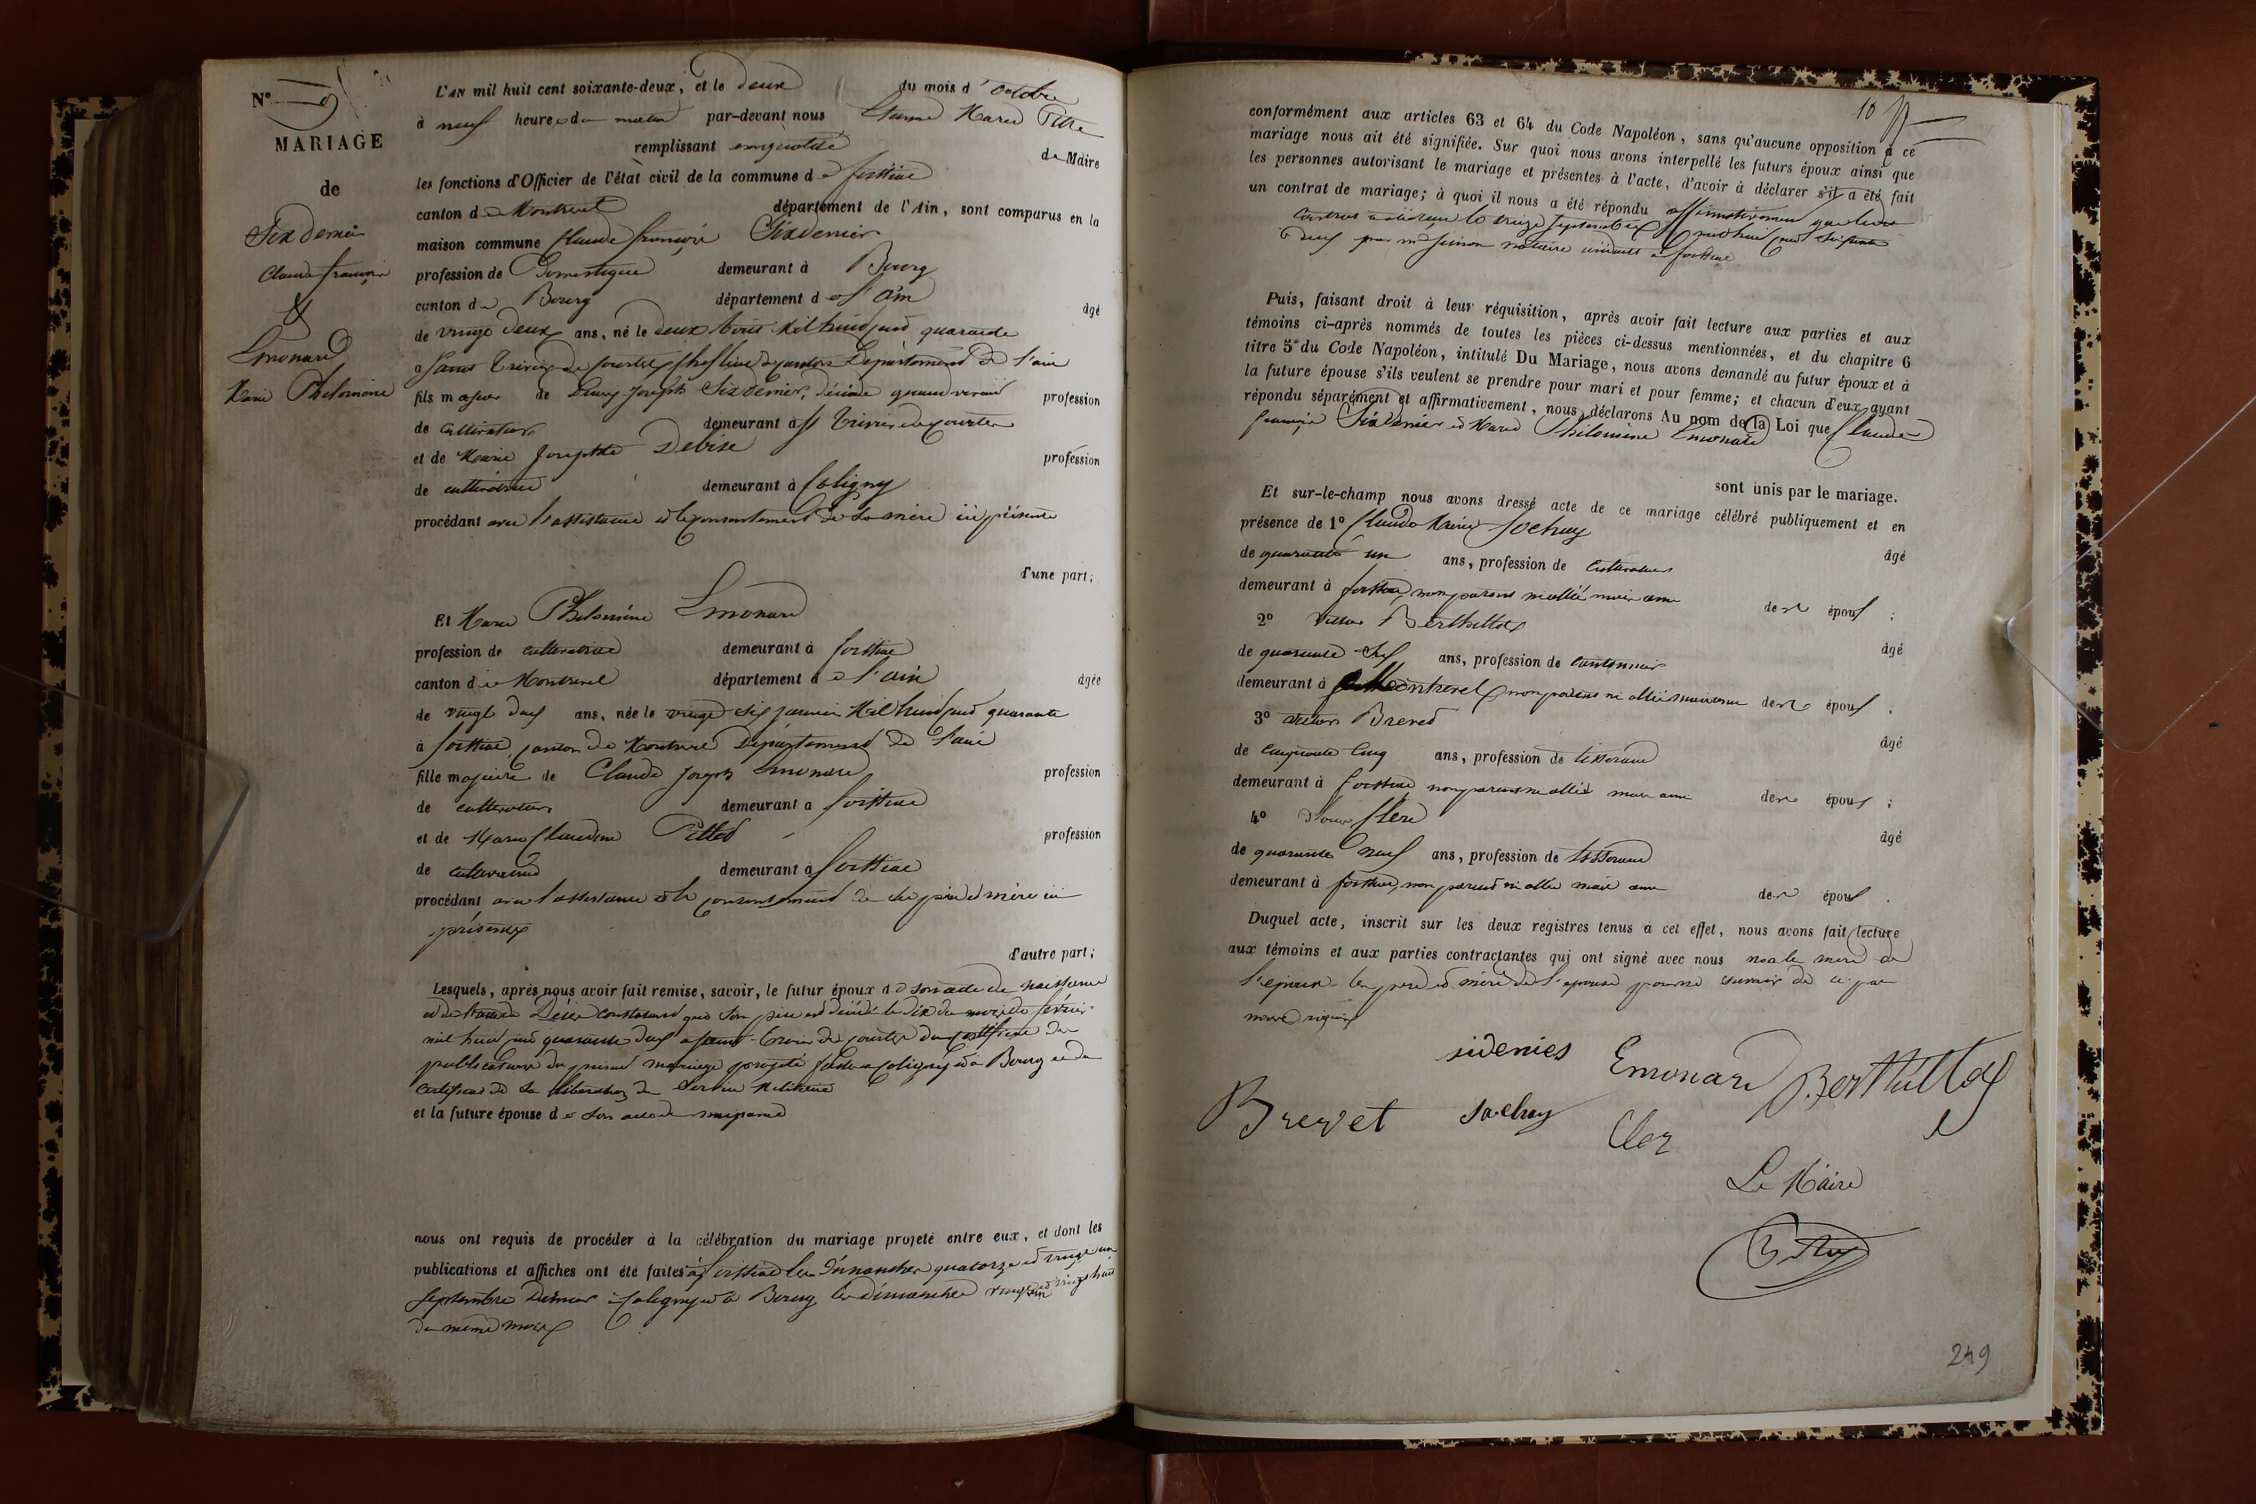 N° 9
MARIAGE
de
Sixdenier
Claude françois
&
Emonard
Marie Philomène
L'AN mil huit cent soixante-deux, et le deux du mois d'Octobre
à neuf heures du matin par-devant nous Marie Pitre
remplissant en qualité de Maire
les fonctions d'Officier de l'état civil de la commune de foissiat
canton de Montrevel département de l'Ain, sont comparus en la
maison commune Claude françois Sixdenier
profession de Domestique demeurant à Bourg
canton de Bourg département de l'ain âgé
de vingt deux ans, né le deux Août mil huit cent quarante
a Saint Trivier de Courtes chef lieu de canton Département de l'ain
fils majeur de Joseph Sixdenier, décédé quand vivait profession
de cultivateur demeurant à St Trivier de courtes
et de Marie Josephte Debise profession
de cultivatrice demeurant à Coligny
procédant avec l'assistance et le consentement de sa mère ici présente
d'une part;
Et Marie Philomène Emonard
profession de cultivatrice demeurant à foissiat
canton de Montrevel département de l'ain âgée
de vingt deux ans, née le vingt six janvier mil huit cent quarante
à foissiat canton de Montrevel Département de l'ain
fille majeure de Claude Joseph Emonard profession
de cultivateur demeurant a foissiat
et de Marie Claudine Pillod profession
de cultivatrice demeurant à foissiat
procédant avec l'assistance et le consentement de ses père et mère ici
présents
d'autre part;
Lesquels, après nous avoir fait remise, savoir, le futur époux de son acte de naissance
et de l'acte de Décès constatant que son père est décédé le dix du mois de février
mil huit cent quarante deux a Saint-Trivier de Courtes du certificat de
publications du présent mariage projeté faites a Coligny et à Bourg et du
certificat de sa libération du Service Militaire
et la future épouse de son acte de naissance
nous ont requis de procéder à la célébration du mariage projeté entre eux, et dont les
publications et affiches ont été faites à foissiat les Dimanches quatorze et vingt un
Septembre Dernier à Coligny et à Bourg les dimanches vingt un et vingt huit
du même mois
10
conformément aux articles 63 et 64 du Code Napoléon, sans qu'aucune opposition à ce
mariage nous ait été signifiée. Sur quoi nous avons interpellé les futurs époux ainsi que
les personnes autorisant le mariage et présentes à l'acte, d'avoir à déclarer s'il a été fait
un contrat de mariage; à quoi il nous a été répondu affirmativement que leur
contrat a été reçu le treize Septembre mil huit cent soixante
deux par notaire résidant a foissiat
Puis, faisant droit à leur réquisition, après avoir fait lecture aux parties et aux
témoins ci-après nommés de toutes les pièces ci-dessus mentionnées, et du chapitre 6
titre 5e du Code Napoléon, intitulé Du Mariage, nous avons demandé au futur époux et à
la future épouse s'ils veulent se prendre pour mari et pour femme; et chacun d'eux ayant
répondu séparément et affirmativement, nous déclarons Au nom de la Loi que Claude
françois Sixdenier et Marie Philomène Emonard
sont unis par le mariage.
Et sur-le-champ nous avons dressé acte de ce mariage célébré publiquement et en
présence de 1° Claude Marie Sochay âgé
de quarante un ans, profession de cultivateur
demeurant à foissiat, non parent ni allié mais ami des époux;
2° Berthillot âgé
de quarante ans, profession de cantonnier
demeurant à Montrevel non parent ni allié mais ami des époux;
3° Brevet âgé
de cinquante cinq ans, profession de tisserand
demeurant à foissiat non parent ni allié mais ami des époux;
4° Clere âgé
de quarante neuf ans, profession de tisserand
demeurant à foissiat, non parent ni allié mais ami des époux.
Duquel acte, inscrit sur les deux registres tenus à cet effet, nous avons fait lecture
aux témoins et aux parties contractantes qui ont signé avec nous non la mère de
l'époux les père et mère de l'épouse pour ne savoir de ce par
nous requis
sidenies Emonard Berthillot
Brevet Sochay Cler
Le Maire
Pitre
249